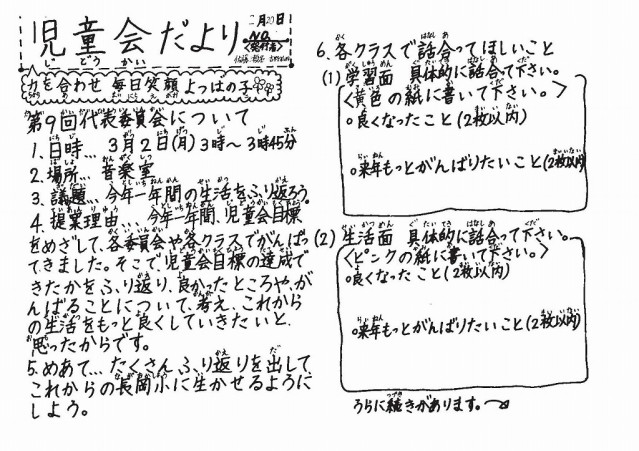 児童会だより
じどうかい
二月20日
NO.
<発行者>
力を合わせ 毎日笑顔 よつばの子
第9回代表委員会について
1.日時… 3月2日(月)3時〜3時45分
2.場所… 音楽室
3.議題… 今年一年間の生活をふり返ろう。
4.提案理由… 今年一年間、児童会目標
をめざして、各委員会や各クラスでがんばっ
てきました。そこで、児童会目標の達成で
きたかをふり返り、良かったところや、が
んばることについて、考え、これから
の生活をもっと良くしていきたいと、
思ったからです。
5.めあて… たくさん ふり返りを出して
これからの長岡小に生かせるように
しよう。
6.各クラスで話合ってほしいこと
(1)学習面 具体的に話合って下さい。
<黄色の紙に書いて下さい。>
○良くなったこと(2枚以内)
○来年もっとがんばりたいこと(2枚以内)
(2)生活面 具体的に話合って下さい。
<ピンクの紙に書いて下さい。>
○良くなったこと(2枚以内)
○来年もっとがんばりたいこと(2枚以内)
うらに続きがあります。